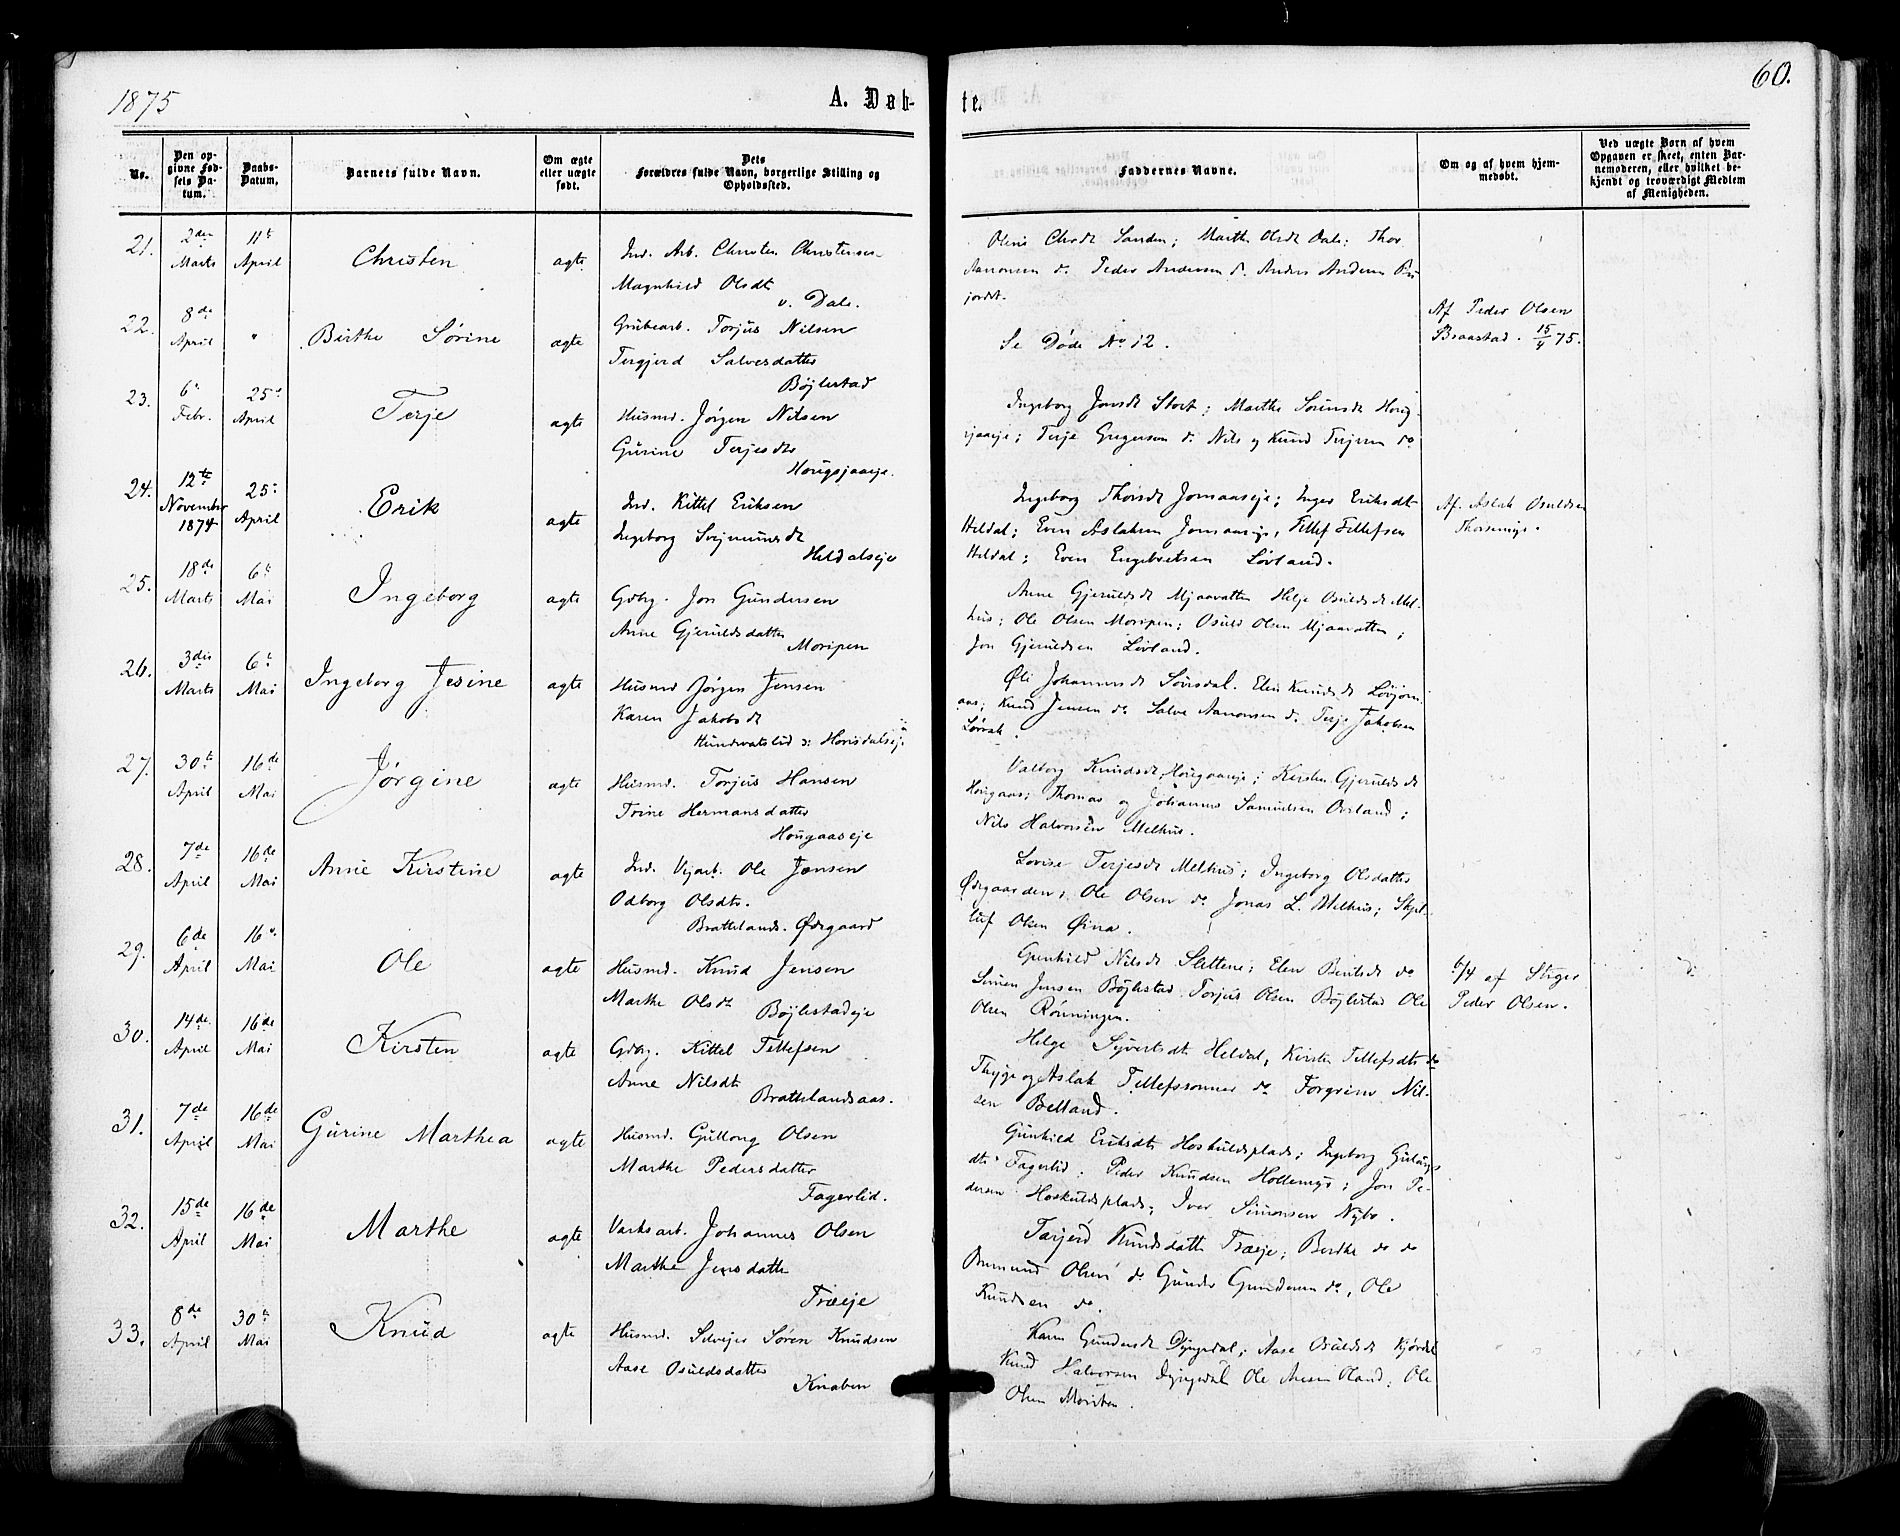 1875
A. Døb-
te.
60.
No.
Den op-
givne Fød-
sels Da-
tum.
Daabs-
Datum.
Barnets fulde Navn.
Om ægte
eller uægte
født.
Dets
Forældres fulde Navn, borgerlige Stilling og
Opholdssted.
Faddernes Navne.
Om og af hvem hjem-
medøbt.
Ved uægte Børn af hvem
Opgaven er skeet, enten Bar-
nemoderen, eller hvilket be-
kjendt og troværdigt Medlem
af Menigheden.
21.
2den
Marts
11te
April
Christen
ægte
Ind. Arb. Christen Christensen
Magnhild Olsdt
v. Dale.
Olene Chrdt Sanden; Marthe Olsdt Dale; Thor
Aanonsen do Peder Andersen do Anders Andersen
jordet.
22.
8de
April
"
Birthe Sørine
ægte
Grubearb. Torjus Nilsen
Tergjerd Salvesdatter
Bøjlestad
Se Døde No 12.
Af Peder Olsen
Braastad. 15/4 75.
23.
6te
Febr.
25de
April
Terje
ægte
Husmd. Jørgen Nilsen
Gurine Terjesdtr
Hougsjaaeje.
Ingeborg Jonsdt Stort; Marthe Sørensdt Houg-
sjaaeje; Terje Gregersen do Nils og Knud Terjesen do
24.
12te
November
1874
25de
April
Erik
ægte
Ind. Kittel Eriksen
Ingeborg Sigmunsdt
Heldalseje
Ingeborg Thorsdt Jomaaseje; Inger Eriksdt
Heldal; Even Aslaksen Jomaaseje, Tellef Tellefsen
Heldal; Even Engebretsen Løvland.
Af. Aslak Osuldsen
25.
18de
Marts
6te
Mai
Ingeborg
ægte
Gbrg. Jon Gundersen
Anne Gjeruldsdatter
Moripen
Anne Gjeruldsdt Mjaavatten Helje Osuldsdt Mel-
hus; Ole Olsen Moripen; Osuld Olsen Mjaavatten;
Jon Gjeruldsen Løvland.
26.
3die
Marts
6te
Mai
Ingeborg Jesine
ægte
Husmd Jørgen Jensen
Karen Jakobsdt
Hundvatslid v: Hovisdalseje
Johannesdt Elen Knudsdt
Knud Jensen do Salve Aanonsen do Terje Jakobsen
27.
30te
April
16de
Mai
Jørgine
ægte
Husmd. Torjus Hansen
Trine Hermansdatter
Hougaaseje
Valborg Knudsdt Hougaaseje; Kirsten Gjeruldsdt
Hougaas; Thomas og Johannes Samuelsen Ovrland;
Nils Halvorsen Melhus.
28.
7de
April
16de
Mai
Anne Kirstine
ægte
Ind. Vejarb. Ole Jensen
Odborg Olsdtr.
Brattelands. Ødegaard
Lovise Terjesdt Melhus; Ingeborg Olsdatter
Ødegaarden; Ole Olsen do Jonas L. Melhus;
Olsen Øina.
29.
6de
April
16de
Mai
Ole
ægte
Husmd. Knud Jensen
Marthe Olsdt
Bøjlestadeje
Gunhild Nilsdt Slettene; Elen Bentsdt do
Simen Jensen Bøjlestad Torjus Olsen Bøjlestad Ole
Olsen Rønningen.
6/4 af Stiger
Peder Olsen.
30.
14de
April
16de
Mai
Kirsten
ægte
Gbrg. Kittel Tellefsen
Anne Nilsdt
Brattelandsaas.
Helge Syvertsdt Heldal, Kirsten Tellefsdt do
Thyge og Aslak Tellefssønner do Torgrim Nil-
sen Belland.
31.
7de
April
16de
Mai
Gurine Marthea
ægte
Husmd. Gullong Olsen
Marthe Pedersdatter
Fagerlid.
Gunhild Eriksdt Hoskuldsplads; Ingeborg
dtr Fagerlid; Peder Knudsen Hollemyr; Jon Pe-
dersen Hoskuldsplads; Iver Simonsen Nybo.
32.
15de
April
16de
Mai
Marthe
ægte
Varksarb. Johannes Olsen
Marthe Jensdatter
Træeje
Tarjerd Knudsdatter Træeje; Berthe do do
Olsen do Gunder Gundersen do, Ole
Knudsen do.
33.
8de
April
30te
Mai
Knud
ægte
Husmd. Selvejer Søren Knudsen
Aase Osuldsdatter
Knaben
Karen Gundersdt Dyngedal; Aase Osuldsdt
Knud Halvorsen Dyngedal Ole Oland; Ole
Olsen Moriben.